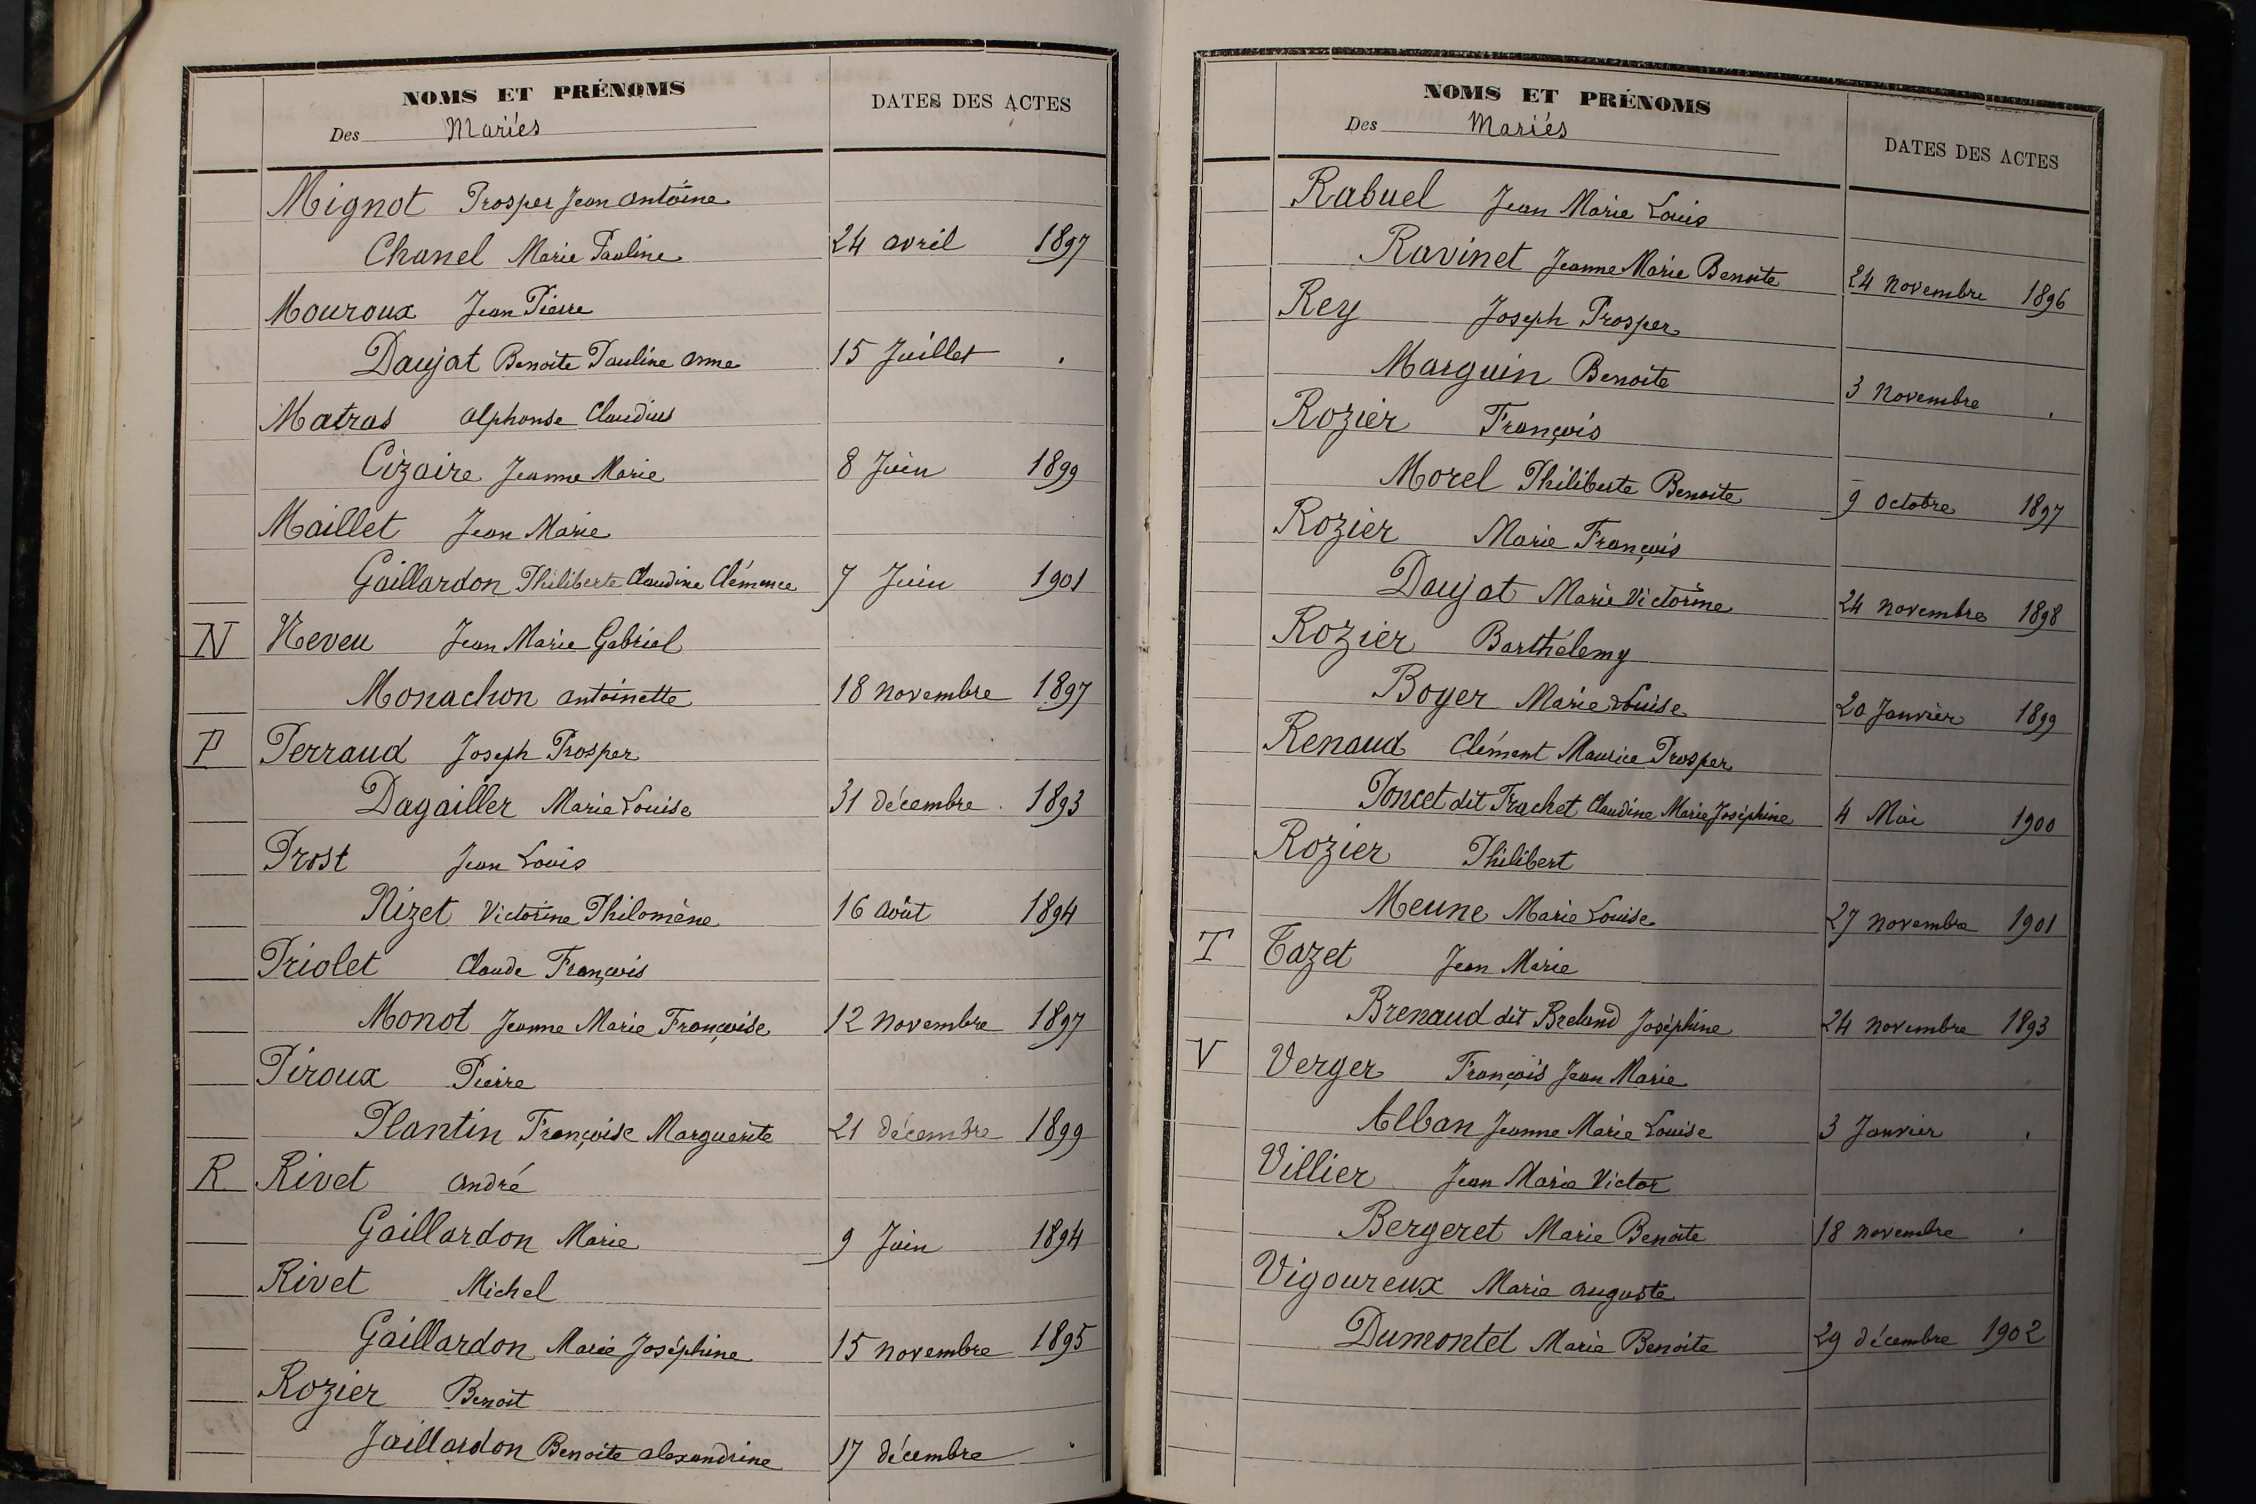 NOMS ET PRÉNOMS
Des Mariés
DATES DES ACTES
Mignot Prosper Jean Antoine
Chanel Marie Pauline 24 avril 1897
Mouroux Jean Pierre
Daujat Benoite Pauline Anne 15 Juillet .
Matras Alphonse Claudius
Cizaire Jeanne Marie 8 Juin 1899
Maillet Jean Marie
Gaillardon Philiberte Claudine Clémence 7 Juin 1901
N Neveu Jean Marie Gabriel
Monachon Antoinette 18 novembre 1897
P Perraud Joseph Prosper
Dagailler Marie Louise 31 décembre 1893
Prost Jean Louis
Nizet Victorine Philomène 16 août 1894
Priolet Claude François
Monot Jeanne Marie Françoise 12 novembre 1897
Piroux Pierre
Plantin Françoise Marguerite 21 décembre 1899
R Rivet André
Gaillardon Marie 9 Juin 1894
Rivet Michel
Gaillardon Marie Joséphine 15 novembre 1895
Rozier Benoit
Jaillardon Benoite Alexandrine 17 décembre .
NOMS ET PRÉNOMS
Des Mariés
DATES DES ACTES
Rabuel Jean Marie Louis
Ravinet Jeanne Marie Benoite 24 novembre 1896
Rey Joseph Prosper
Marguin Benoite 3 novembre .
Rozier François
Morel Philiberte Benoite 9 octobre 1897
Rozier Marie François
Daujat Marie Victorine 24 novembre 1898
Rozier Barthélemy
Boyer Marie Louise 20 Janvier 1899
Renaud Clément Maurice Prosper
Poncet dit Frachet Claudine Marie Joséphine 4 Mai 1900
Rozier Philibert
Meune Marie Louise 27 novembre 1901
T Tazet Jean Marie
Brenaud dit Breland Joséphine 24 novembre 1893
V Verger François Jean Marie
Alban Jeanne Marie Louise 3 Janvier .
Villier Jean Marie Victor
Bergeret Marie Benoite 18 novembre .
Vigoureux Marie Auguste
Dumontel Marie Benoite 29 décembre 1902